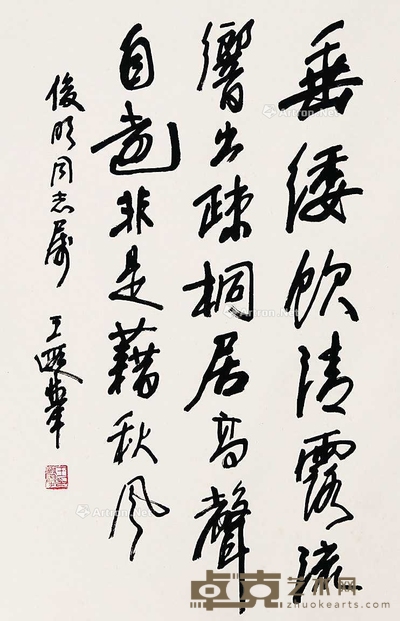 垂緌飲清露流
響出疎桐居高聲
自遠非是藉秋風
俊明同志属
王遐舉
Artron.Net
卓克艺术网
zhuokearts.com